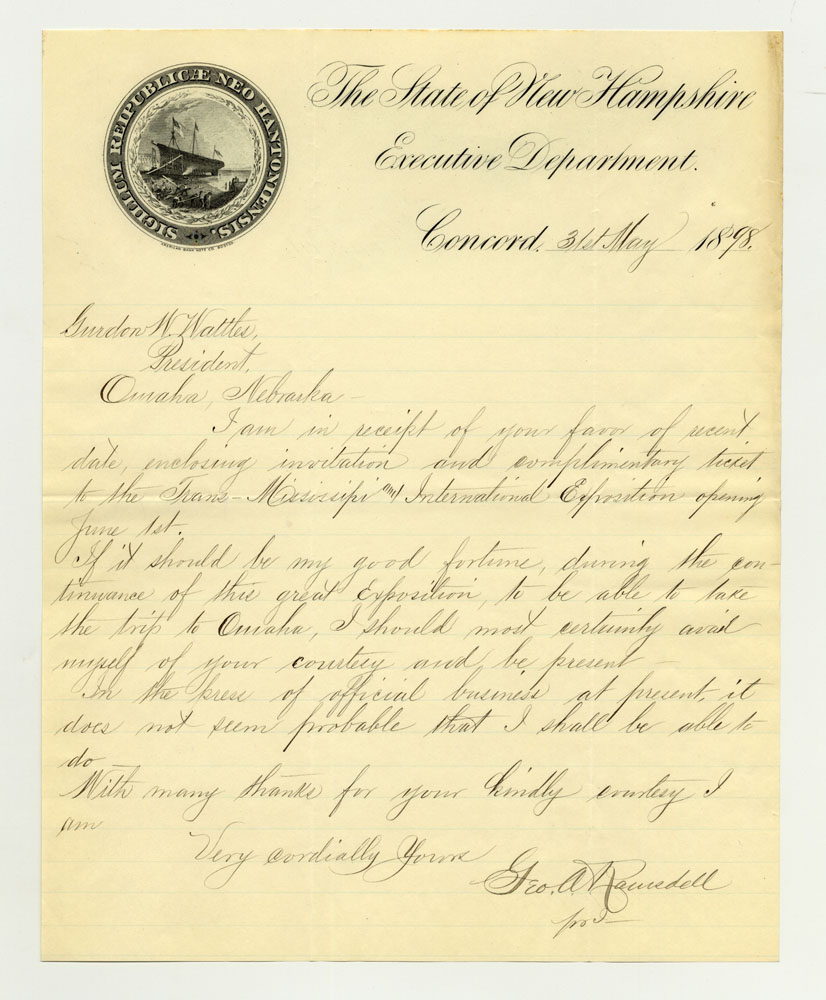 SIGILLUM REIPUBLICÆ NEO HANTONIENSIS.
AMERICAN BANK NOTE CO. BOSTON.
The State of New Hampshire
Executive Department.
Concord, 31st May 1898.
Gurdon W. Wattles,
President,
Omaha, Nebraska –
I am in receipt of your favor of recent
date, enclosing invitation and complimentary ticket
to the Trans-Mississipi and International Exposition opening
June 1st.
If it should be my good fortune, during the con-
tinuance of this great Exposition, to be able to take
the trip to Omaha, I should most certainly avail
myself of your courtesy and be present –
In the press of official business at present, it
does not seem probable that I shall be able to
do –
With many thanks for your kindly courtesy I
am
Very cordially Yours
Geo. A. Ramsdell